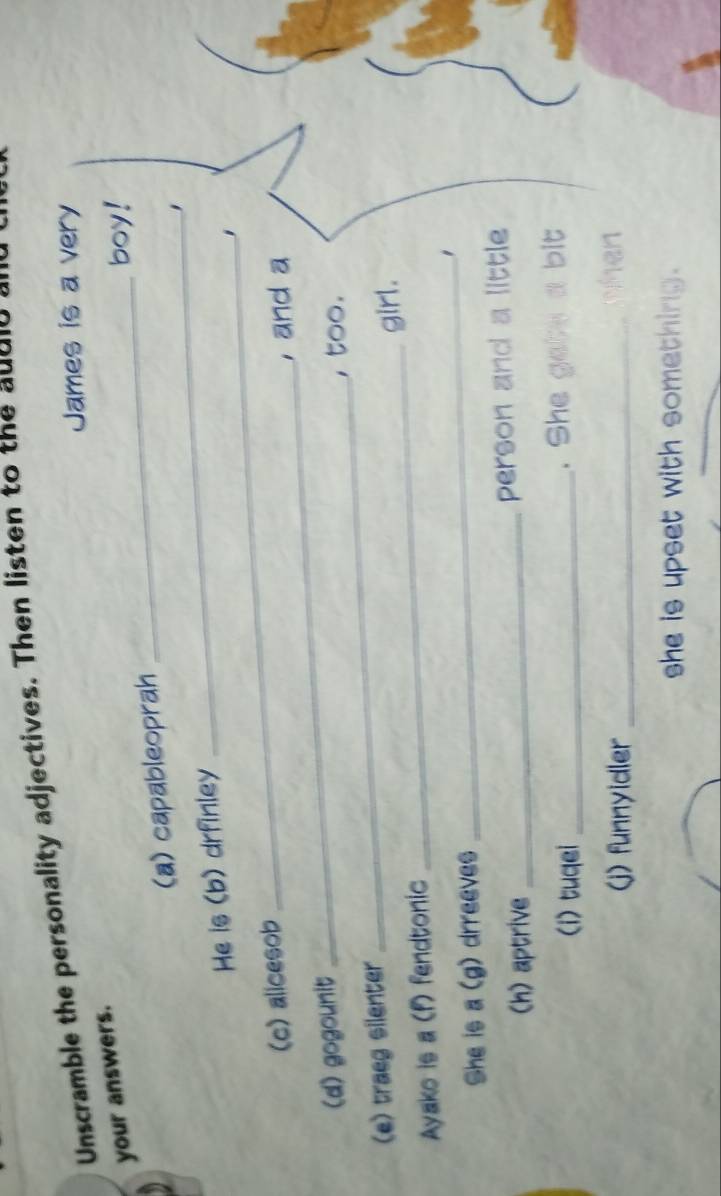 Unscramble the personality adjectives. Then listen to the audio and check
your answers.
James is a very
(a) capableoprah ____ boy!
He is (b) drfinley ____,
(c) alicesob ____,
(d) gogounit ____, and a
(e) traeg silenter ____, too.
Ayako is a (f) fendtonic ____ girl.
She is a (g) drreeves ____,
(h) aptrive ____ person and a little
(i) tuqei ____. She gets a bit
(j) funnyidler ____ when
she is upset with something.